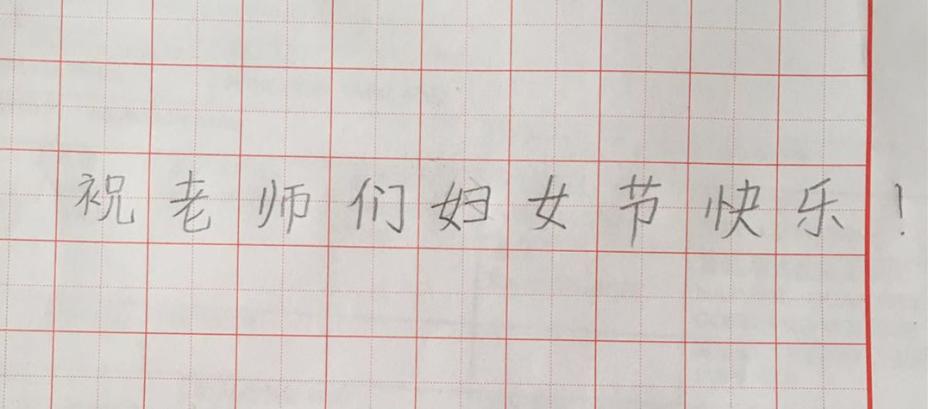 祝老师们妇女节快乐！